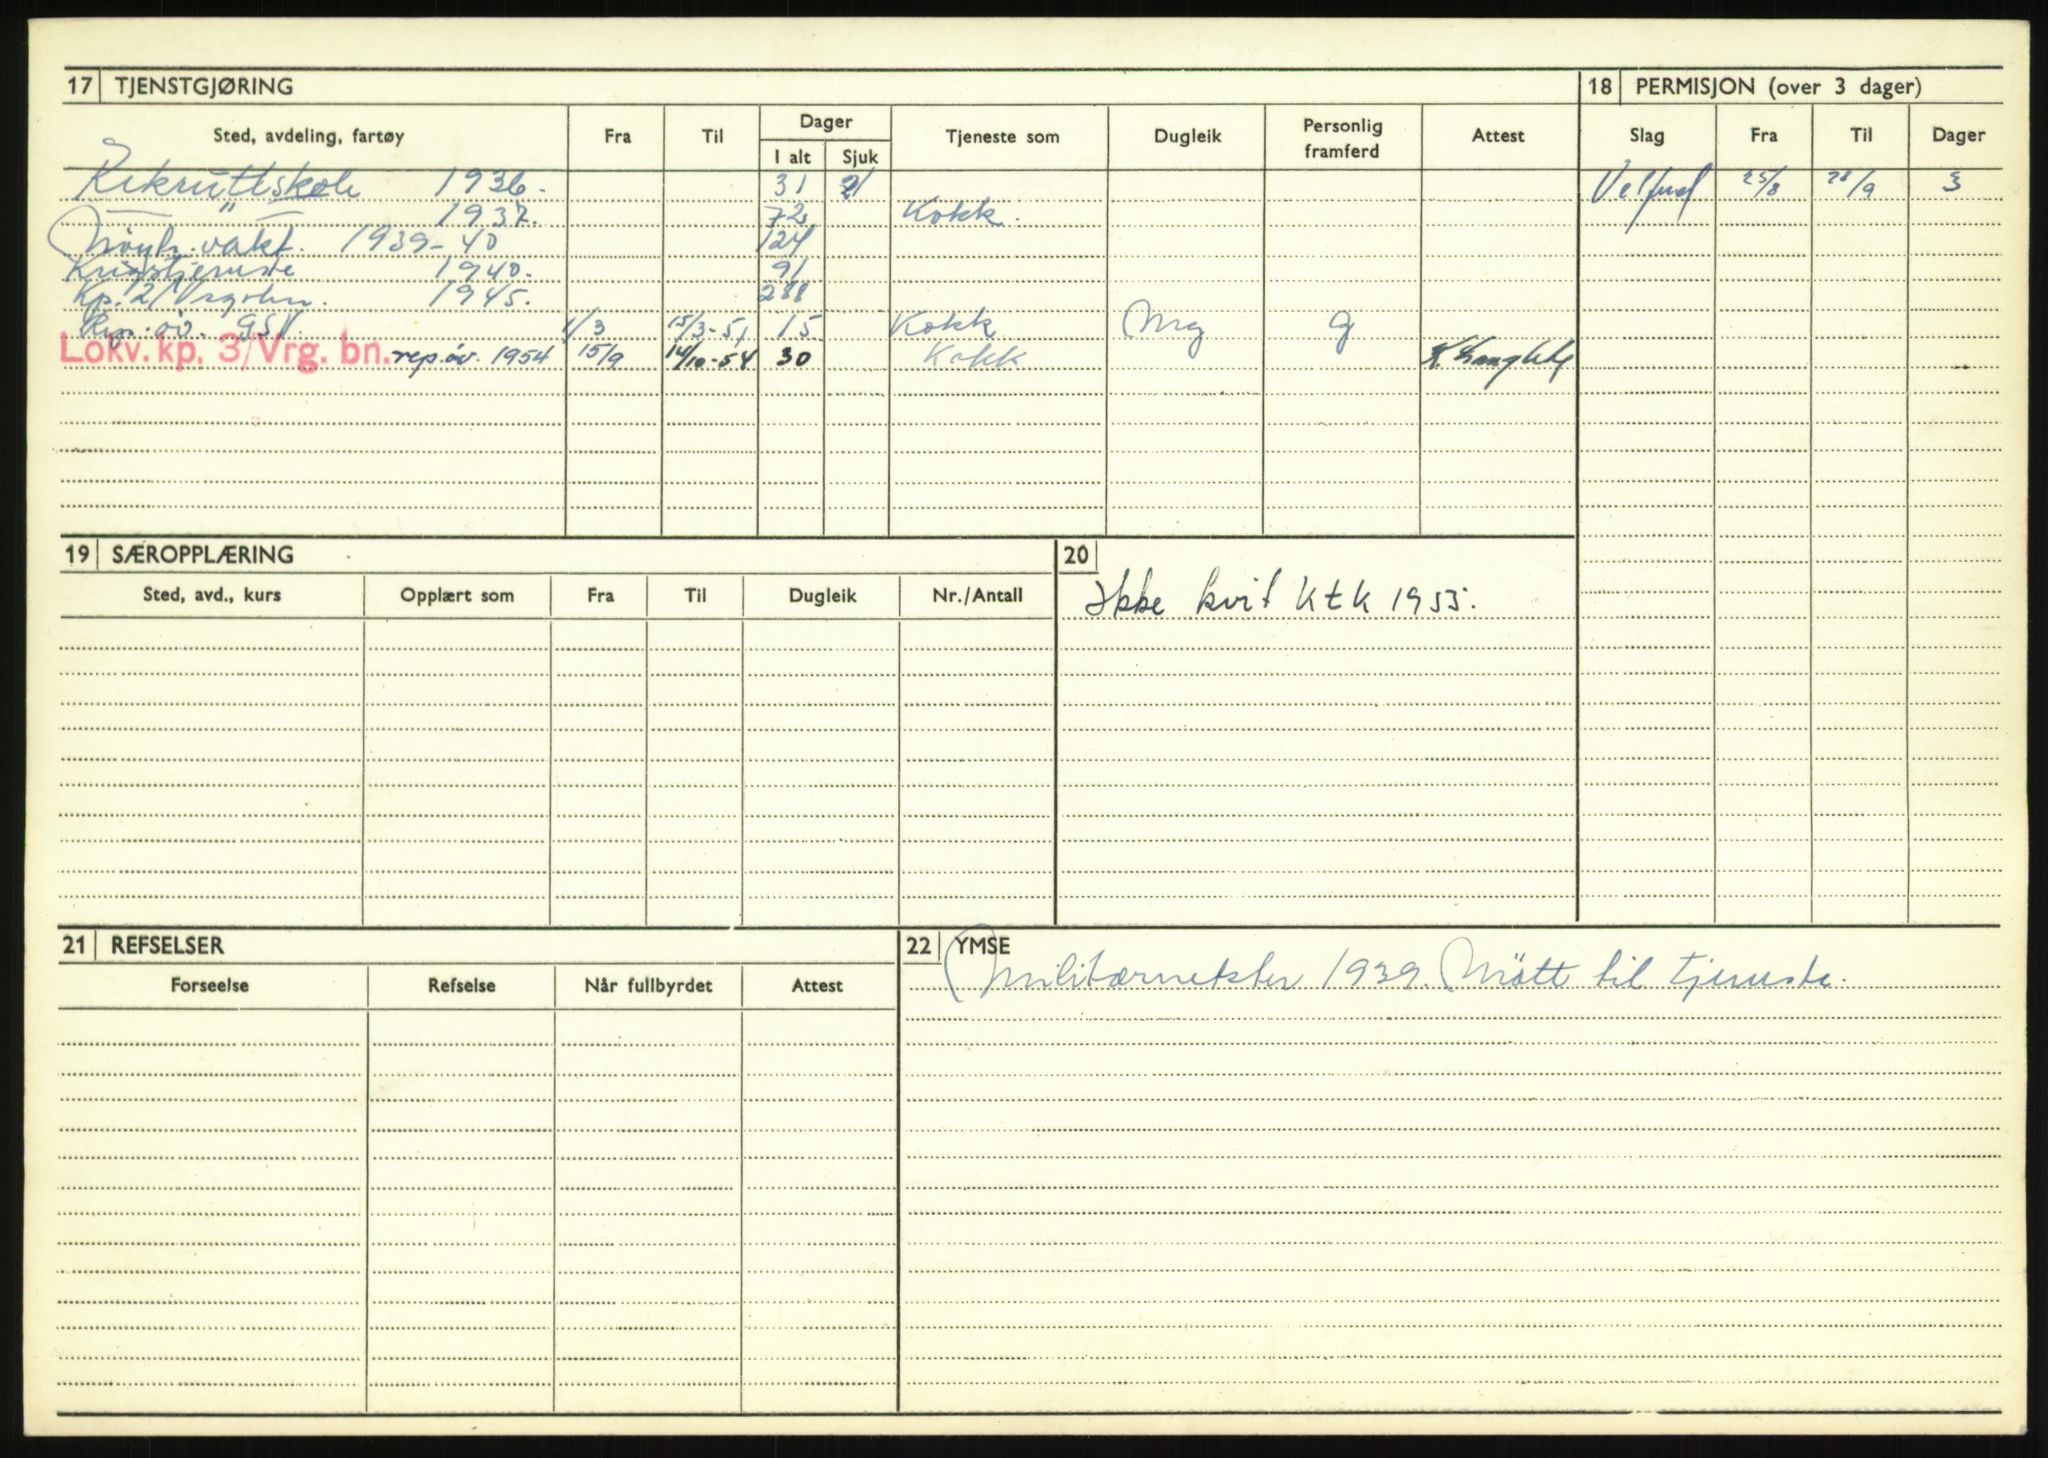 17 TJENSTGJØRING
Sted, avdeling, fartøy Fra Til Dager I alt Sjuk Tjeneste som Dugleik Personlig framferd Attest
Rekruttskole 1936. 31 21
— " — 1937. 72 Kokk.
Nøytr. vakt. 1939-40 124
Krigstjeneste 1940. 91
Kp. 2/Vrg.bn. 1945. 288
Rep. øv. GSV. 1/3 15/3-51 15 Kokk Mg g
Lokv. kp. 3/Vrg. bn. rep.øv. 1954 15/9 14/10-54 30 Kokk
18 PERMISJON (over 3 dager)
Slag Fra Til Dager
Velferd 25/8 28/9 3
19 SÆROPPLÆRING
Sted, avd., kurs Opplært som Fra Til Dugleik Nr./Antall
20
Ikke kvit KtK 1955.
21 REFSELSER
Forseelse Refselse Når fullbyrdet Attest
22 YMSE
Militærnekter 1939. Møtt til tjeneste.